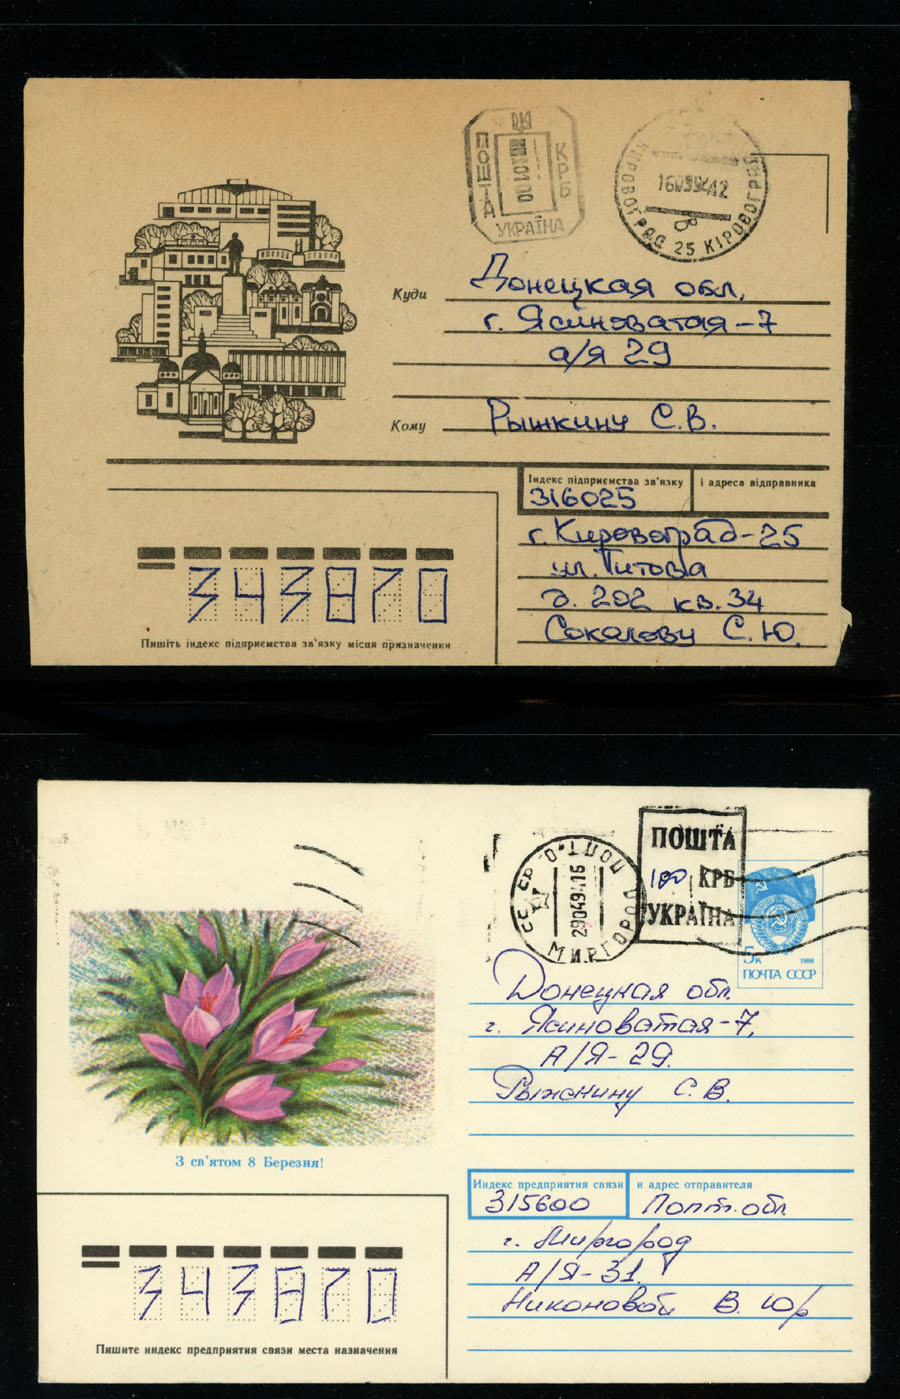 ПОШТА
КРБ
УКРАЇНА
КІРОВОГРАД 25 КІРОВОГРАД
Куди Донецкая обл,
г. Ясиноватая-7
а/я 29
Кому Рышкину С.В.
Індекс підприємства зв'язку і адреса відправника
316025
г. Кировоград-25
ул. Титова
д. 202 кв. 34
Соколову С.Ю.
343870
Пишіть індекс підприємства зв'язку місця призначення
ПОШТА
100 КРБ
УКРАЇНА
МИРГОРОД
290494.16
5к 1988
ПОЧТА СССР
Донецкая обл.
г. Ясиноватая-7,
А/Я-29.
С. В.
З св'ятом 8 Березня!
Индекс предприятия связи и адрес отправителя
315600 Полт. обл
г. Миргород
А/Я-31.
Никоновой В. Ю.
343870
Пишите индекс предприятия связи места назначения